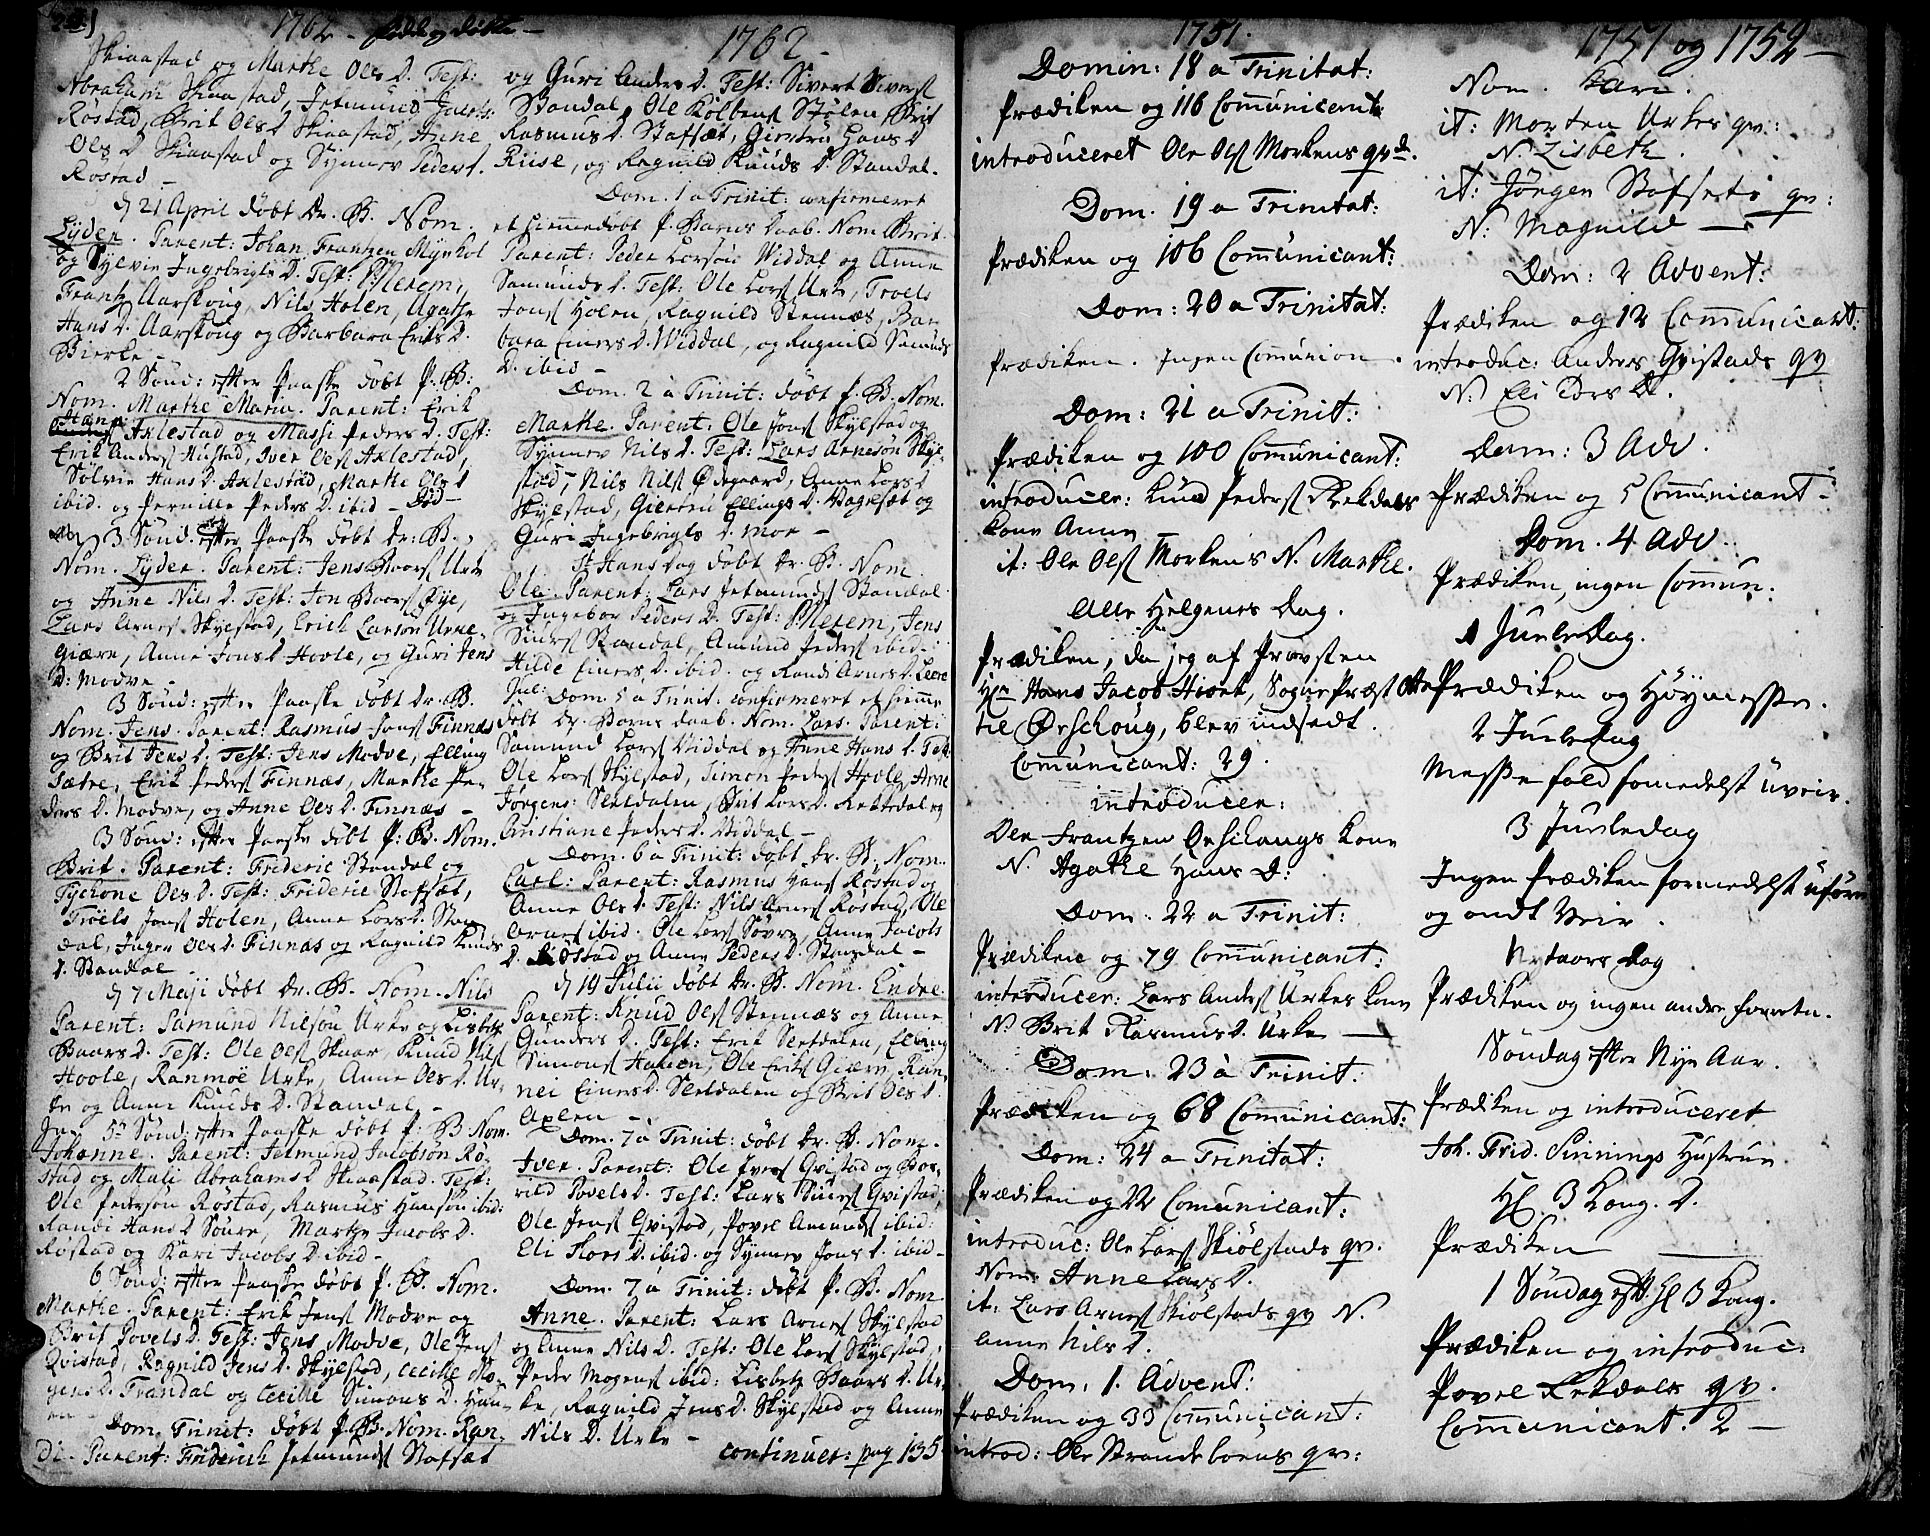 1762 - födde og döbte -
Skiaastad og Marthe Ols D. Test:
Abraham Skiaastad, Jetmund Jacobs:
Röstad, Brit Ols D Skiaastad, Anne
Ols D Skiaastad og Synnev Peders d.
Röstad -
d 21 April döbt Dr. B. Nom.
Lyder. Parent: Johan Frantzen Mÿnhol
og Sylvie Ingebrigts D. Test: Merem,
Frantz Aarskoug, Nils Holen, Agathe
Hans D. Aarskoug og Barbara Eriks D.
Bierke -
2 Sönd: efter Paaske döbt P. B:
Nom. Marthe Maria. Parent: Erik
Hans Axlestad og Massi Peders D. Test:
Erik Anders Hustad, Iver Ols Axlestad,
Sölvie Hans D. Axlestad, Marthe Ols d
ibid. og Pernille Peders D. ibid -
3 Sönd. efter Paaske döbt Dr: B.
Nom. Lyder. Parent: Jens Baars Urke
og Anne Nils D. Test: Jon Baars Öie,
Lars Arnes Skylstad, Erich Larson Urke-
giære, Anne Jons D Hovle, og Guri Jens
D: Modve -
3 Sönd: efter Paaske döbt Dr. B.
Nom. Jens. Parent: Rasmus Jons Finnæs
og Brit Jens D. Test: Jens Modve, Elling
Sætre, Erik Peders Finnæs, Marthe Pe-
ders D. Modve, og Anne Ols D. Finnæs -
3 Sönd: efter Paaske döbt P: B. Nom.
Brit. Parent: Frideric Standal og
Tychone Ols D. Test: Frideric Stafsæt,
Troels Jons Holen, Anne Lors D. Stan
dal, Inger Ols D. Finnas og Ragnild Knuds
D. Standal -
d 7 Maji döbt Dr. B. Nom. Nils
Parent: Samund Nilsön Urke og Lisbeth
Baars D. Test: Ole Ols Skaar, Knud Nils
Hovle, Ranmöe Urke, Anne Ols D. Ur-
ke og Anne Knuds D. Standal -
5te Sönd: efter Paaske döbt P. B Nom.
Johanne. Parent: Jetmund Jacobsön Rö-
stad og Mali Abrahams D Skiaastad. Test:
Ole Pederson Röstad, Rasmus Hansön ibid:
Randi Hans D Söure, Marthe Jacobs D.
Röstad og Kari Jacobs D. ibid -
6 Sönd: efter Paaske döbt P. B. Nom.
Marthe. Parent: Erik Jens Modve og
Brit Povels D. Test: Jens Modve, Ole Jens
Qvistad, Ragnild Jens D. Skylstad, Cecilie Mo-
gens D. Trandal og Cecilie Simons D. Hau-
en -
Dom. Trinit: döbt P. B. Nom. Ran-
di. Parent: Friderich Jetmunds Stafsæt
1762 -
og Guri Anders D. Test: Sivert Sivers
Standal, Ole Kolbens Stölen, Brit
Rasmus D. Stafsæt, Giertru Hans D
Riise, og Ragnild Knuds D. Standal.
Dom. 1 a Trinit: confirmeret
et hiemmedöbt P. Barns Daab. Nom Brit.
Parent: Peder Larsön Widdal og Anne
Samunds D. Test: Ole Lors Urke, Troels
Jons Holen, Ragnild Stennæs, Bar
bara Einers D. Widdal, og Ragnild Samunds
D. ibid -
Dom. 2 à Trinit: döbt P. B. Nom.
Marthe. Parent: Ole Jons Skylstad og
Synnev Nils D. Test: Lars Arnesön Skyl-
stad, Nils Nils Ödegaard, Anne Lors D
Skylstad, Giertru Ellings D. Vagesæt og
Guri Ingebrigts D. Moe -
St Hans Dag döbt Dr. B. Nom
Ole. Parent: Lars Jetmunds Standal
og Ingebor Peders D. Test: Merem, Jens
Siurs Standal, Amund Peders ibid:
Hilde Einers D. ibid. og Randi Arnes D. Leere
Jul: Dom. 5 a Trinit. confirmeret et hiemme
döbt Dr. Barns Daab. Nom. Lars. Parent:
Samund Lors Widdal og Anne Hans D. Test.
Ole Lors Skylstad, Simon Peders Hovle, Arne
Jörgens: Sletdalen, Brit Lors D. Rekkedal og
Christiane Peders D. Widdal -
Dom. 6 a Trinit: döbt Dr. B. Nom.
Carl: Parent: Rasmus Hans Röstad og
Anne Ols D. Test: Nils Arnes Röstad, Ole
Arnes ibid. Ole Lors Sövre, Anne Jacobs
D. Röstad og Anne Peders D. Standal -
d 19 Julii döbt Dr. B. Nom. Endre.
Parent: Knud Ols Stennæs og Anne
Gunders D. Test: Erik Sletdalen, Elling
Simons Hauen, Ole Eriks Giære, Ran-
nei Einers D. Sletdalen og Brit Ols D.
Axlen -
Dom. 7 à Trinit: döbt Dr. B. Nom.
Iver. Parent: Ole Ivers Qvistad og Bor-
rild Povels D. Test: Lars Siurs Qvistad,
Ole Jens Qvistad, Povel Amunds ibid:
Eli Flors D. ibid. og Synnev Jons D. ibid -
Dom. 7 a Trinit: döbt P. B. Nom
Anne. Parent: Lars Arnes Skylstad
og Anne Nils D. Test: Ole Lors Skylstad,
Peder Mogens ibid: Lisbeth Baars D. Ur-
ke, Ragnild Jens D. Skylstad og Anne
Nils D. Urke -
continuer: pag 135
1751.
Domin: 18 a Trinitat:
Prædiken og 116 Communicant:
introduceret Ole Ols Morkens qvd.
Dom. 19 a Trinitat:
Prædiken og 106 Communicant:
Dom: 20 a Trinitat:
Prædiken. Ingen Communion.
Dom: 21 a Trinit:
Prædiken og 100 Communicant:
introducer: Knud Peders Rekdals
Kone Anne
it: Ole Ols Morkens N. Marthe.
Alle Helgenes Dag.
Prædiken, da jeg af Provsten
Hr. Hans Jacob Hiort, Sogne Præst
til Örschoug, blev indsadt.
Communicant: 29.
introducer:
Ole Frantzen Örschougs Kone
N. Agathe Hans D:
Dom. 22 a Trinit:
Prædiken og 79 Communicant:
introducer: Lars Anders Urkes Kone
N. Brit Rasmus D. Urke -
Dom: 23 à Trinit:
Prædiken og 68 Communicant:
Dom: 24 a Trinitat:
Prædiken og 22 Communicant:
introduc: Ole Lars Skiölstads qv.
Nom: Anne Lars D.
it: Lars Arnes Skiölstads qv N.
Anne Nils D.
Dom: 1. Advent:
Prædiken og 33 Communicant:
introd: Ole Strandeboens qv:
1751 og 1752 -
Nom. Kari.
it: Morten Urkes qv:
N. Lisbeth.
it: Jörgen Bofsets qv:
N: Magnild -
Dom: 2 Advent:
Prædiken og 12 Communicant:
introduc: Anders Qvistads qv
N. Eli Lars D.
Dom: 3 Adv.
Prædiken og 5 Communicant -
Dom. 4 Adv.
Prædiken, ingen Commun:
1 Juele Dag.
Prædiken og Höymesse.
2 Jueledag
Messefald formedelst uveir.
3 Jueledag
Ingen Prædiken formedelst uföre
og ondt Veir.
Nytaars Dag
Prædiken og ingen andre forretn.
Söndag efter Nye Aar.
Prædiken og introduceret
Joh. Frid. Sinnings Hustrue.
Hl. 3 Kong. D.
Prædiken
1 Söndag eft. Hl 3 Kong.
Prædiken og introduc:
Povel Rekdals qv.
Communicant. 2 -